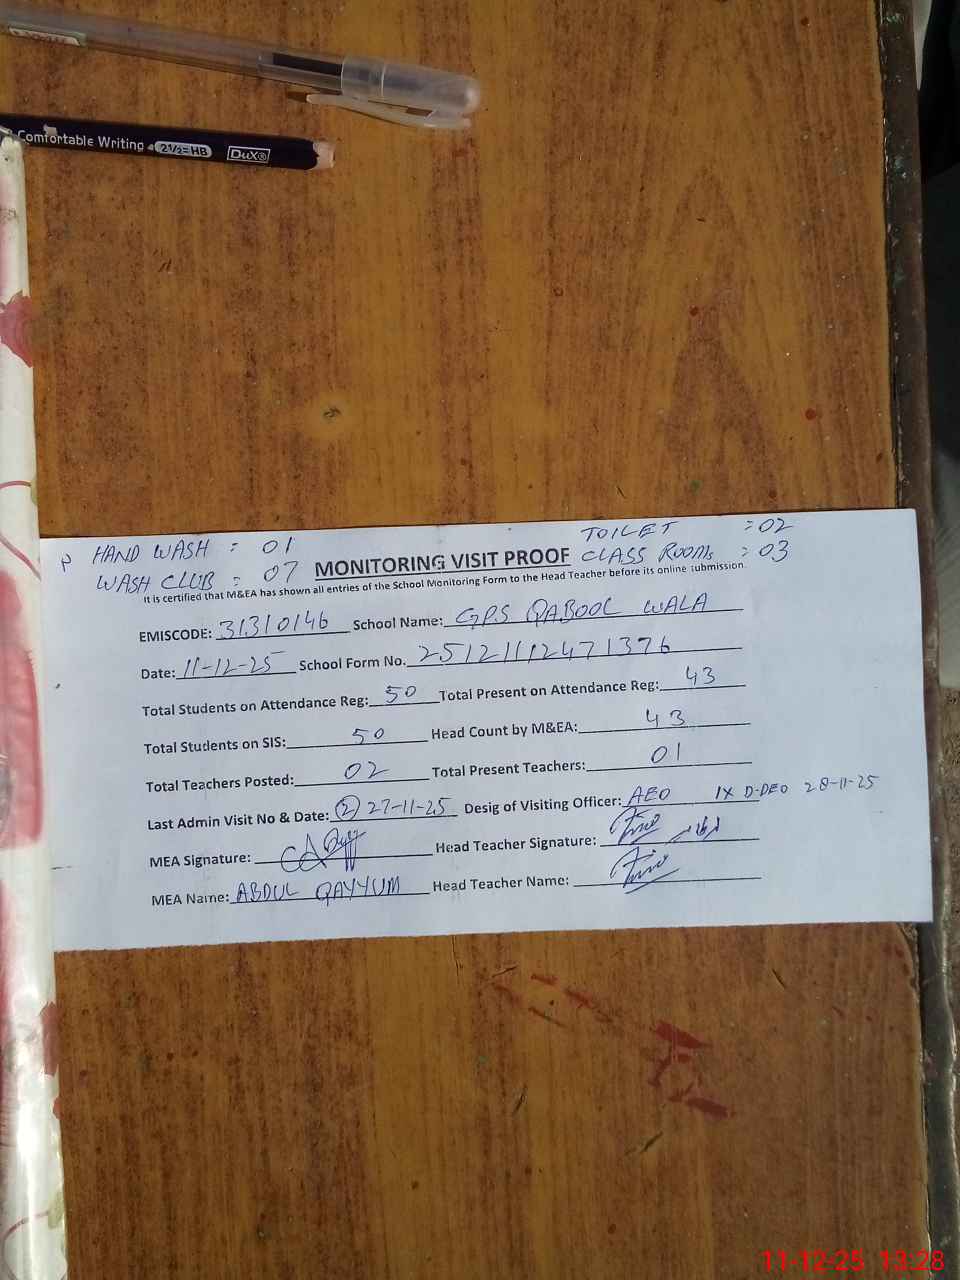 Comfortable Writing 2½=HB DUX®
HAND WASH : 01 TOILET :02
WASH CLUB : 07 MONITORING VISIT PROOF CLASS ROOMS : 03
It is certified that M&EA has shown all entries of the School Monitoring Form to the Head Teacher before its online submission.
EMISCODE: 31310146 School Name: GPS QABOOL WALA
Date: 11-12-25 School Form No. 25121112471376
Total Students on Attendance Reg: 50 Total Present on Attendance Reg: 43
Total Students on SIS: 50 Head Count by M&EA: 43
Total Teachers Posted: 02 Total Present Teachers: 01
Last Admin Visit No & Date: (2) 27-11-25 Desig of Visiting Officer: AEO 1X D-DEO 28-11-25
MEA Signature: Head Teacher Signature:
MEA Name: ABDUL QAYYUM Head Teacher Name:
11-12-25 13:28